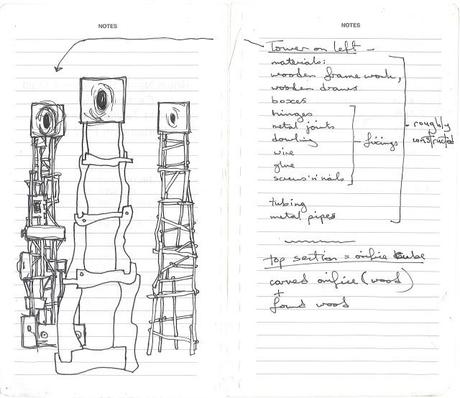 NOTES
NOTES
Tower on left -
materials:
wooden frame work,
wooden draws
boxes
hinges
metal joints
dowling
wire
glue
screws 'n' nails
fixings
roughly
constructed
tubing
metal pipes
top section = orifice cube
carved orifice (wood)
+
found wood